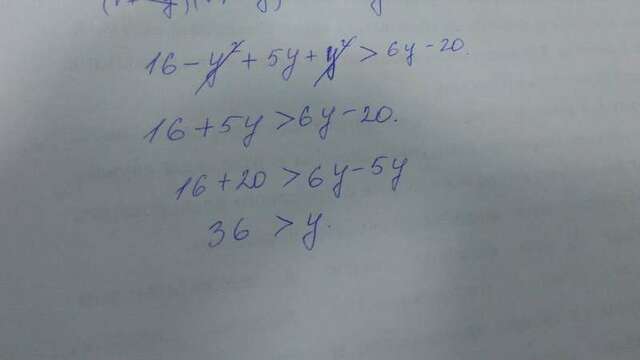 16 - y² + 5y + y² > 6y - 20.
16 + 5y > 6y - 20.
16 + 20 > 6y - 5y
36 > y.